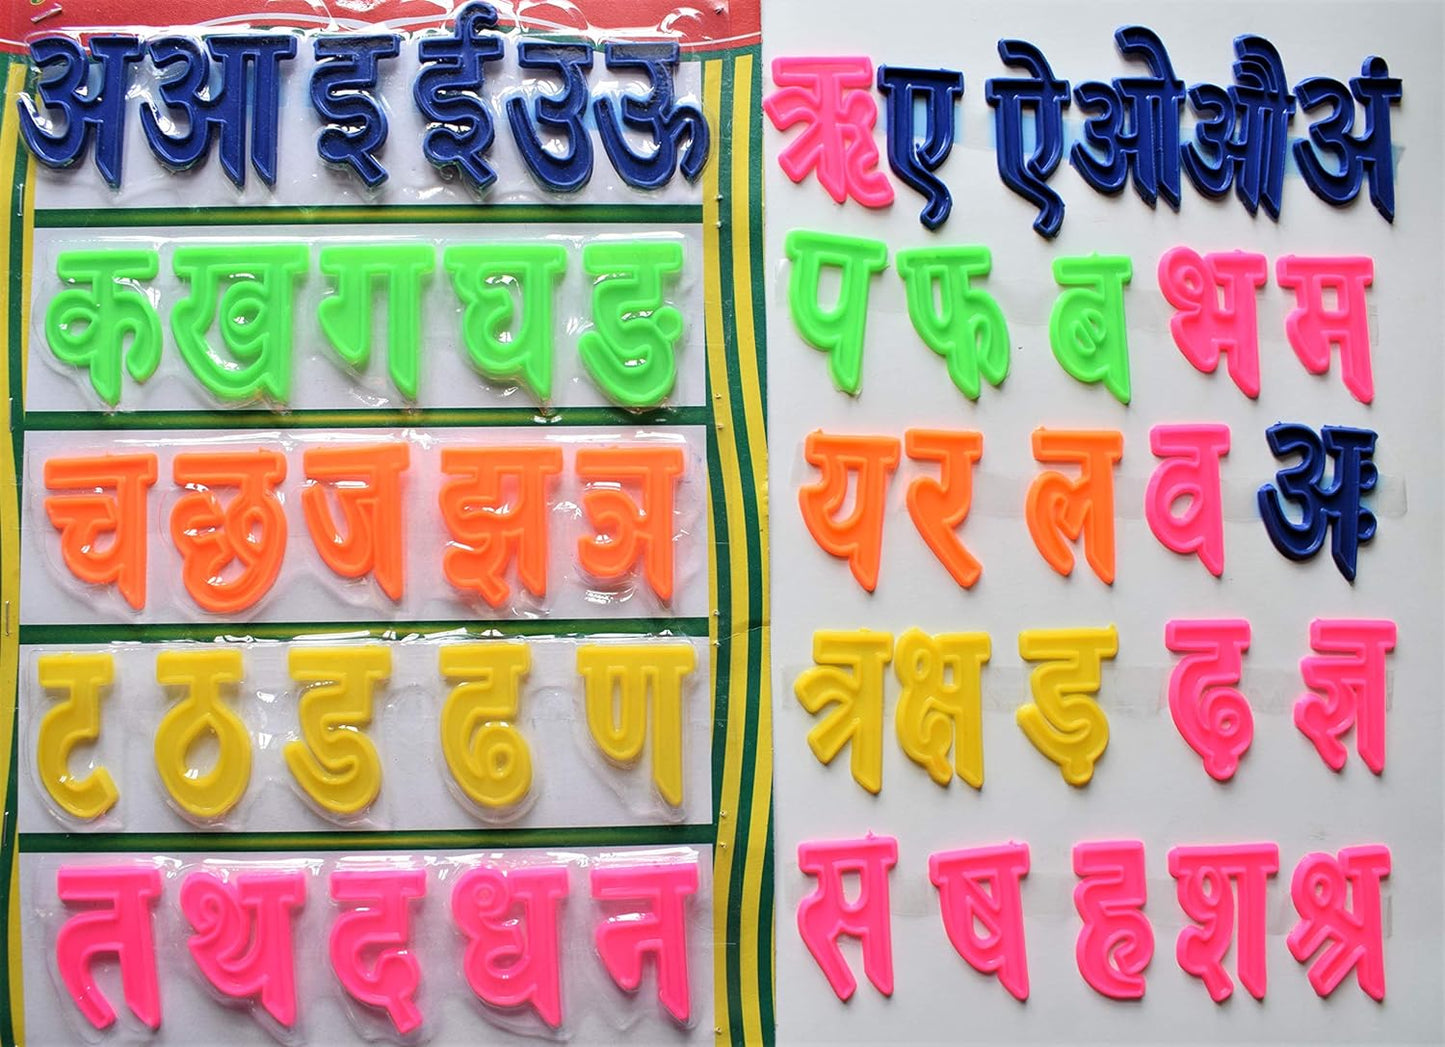 अ आ इ ई उ ऊ
क ख ग घ ङ
च छ ज झ ञ
ट ठ ड ढ ण
त थ द ध न
ऋ ए ऐ ओ औ अं
प फ ब भ म
य र ल व अः
त्र क्ष ड़ ढ़ ज्ञ
स ष ह श श्र